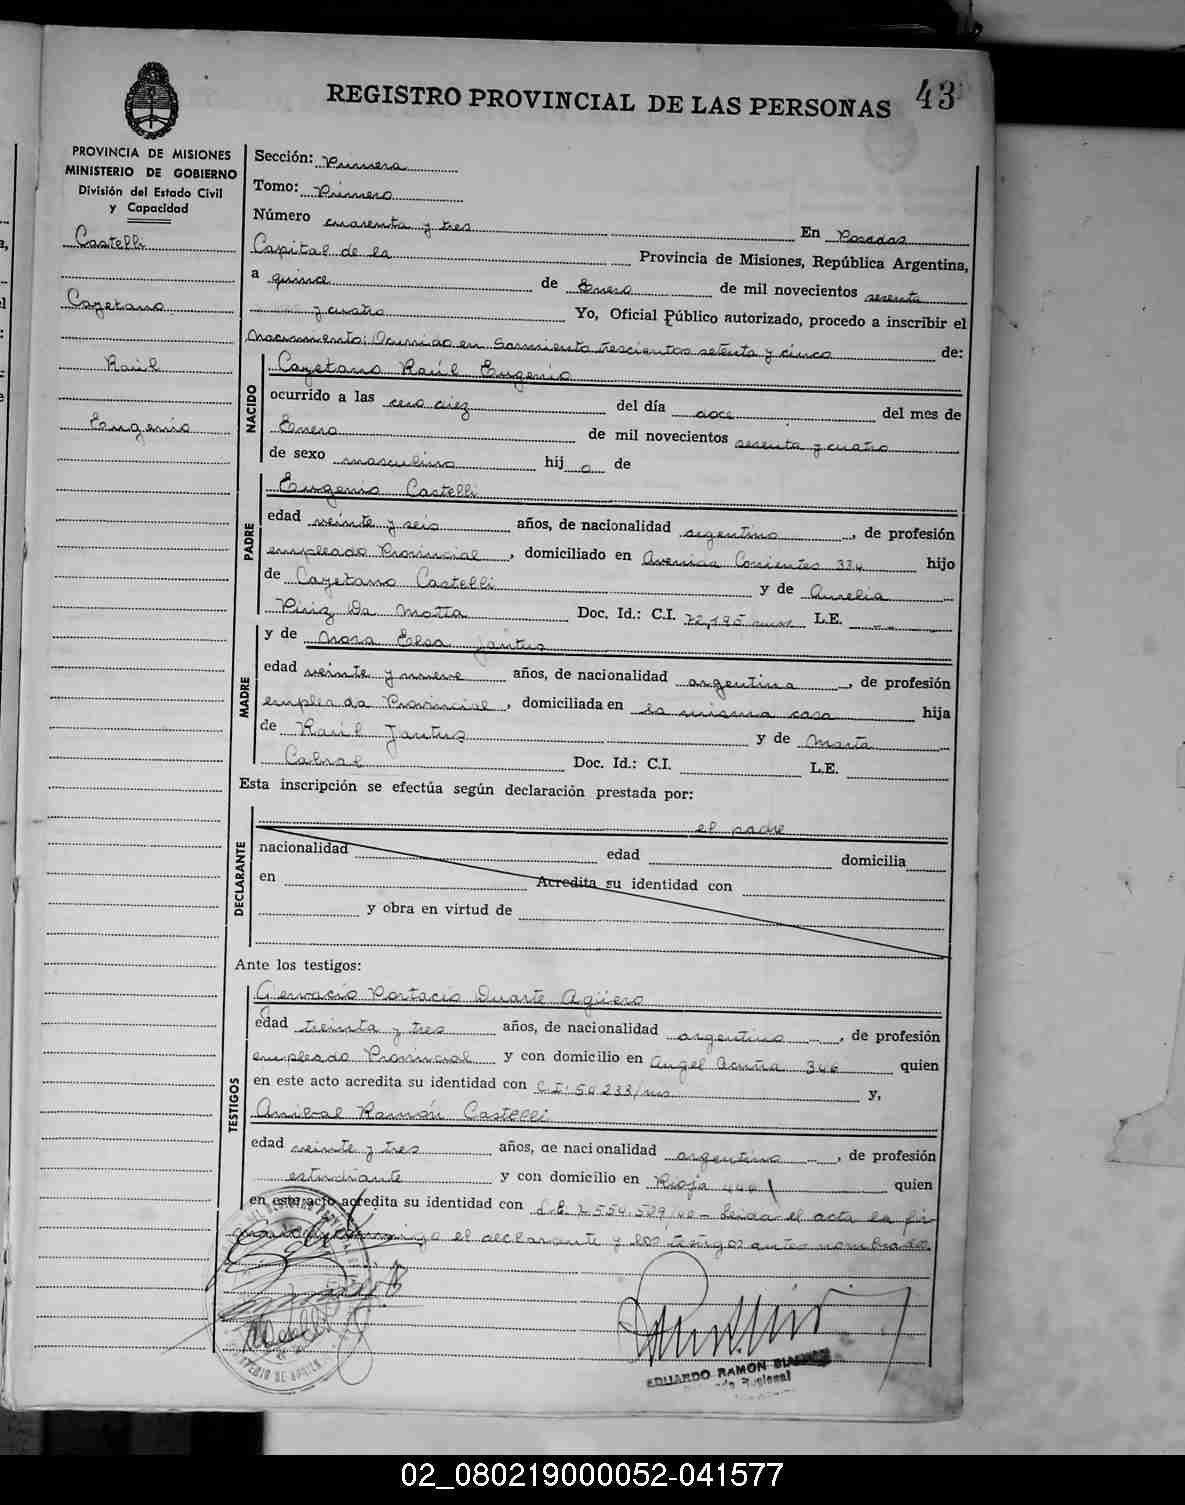 43
REGISTRO PROVINCIAL DE LAS PERSONAS
PROVINCIA DE MISIONES
MINISTERIO DE GOBIERNO
División del Estado Civil
y Capacidad
Castelli
Cayetano
Raúl
Eugenio
Sección: Primera
Tomo: Primero
Número cuarenta y tres En Posadas
Capital de la Provincia de Misiones, República Argentina,
a quince de Enero de mil novecientos sesenta
y cuatro Yo, Oficial Público autorizado, procedo a inscribir el
Nacimiento: Ocurrido en Sarmiento trescientos setenta y cinco de:
NACIDO
Cayetano Raúl Eugenio
ocurrido a las cero diez del día doce del mes de
Enero de mil novecientos sesenta y cuatro
de sexo masculino hij o de
PADRE
Eugenio Castelli
edad veinte y seis años, de nacionalidad argentino, de profesión
empleado Provincial, domiciliado en Avenida Corrientes 334 hijo
de Cayetano Castelli y de Aurelia
Piriz Da Motta Doc. Id.: C.I. 72,195 L.E. --
MADRE
y de Nora Elsa Jantus
edad veinte y nueve años, de nacionalidad argentina, de profesión
empleada Provincial, domiciliada en la misma casa hija
de Raúl Jantus y de Marta
Cabral Doc. Id.: C.I. L.E.
Esta inscripción se efectúa según declaración prestada por:
DECLARANTE
el padre
nacionalidad edad domicilia
en Acredita su identidad con
y obra en virtud de
Ante los testigos:
TESTIGOS
Gervacio Portacio Duarte Agüero
edad treinta y tres años, de nacionalidad argentino, de profesión
empleado Provincial y con domicilio en Angel Acuña 346 quien
en este acto acredita su identidad con C.I: 50 233/ y,
Anibal Ramón Castelli
edad veinte y tres años, de nacionalidad argentino, de profesión
estudiante y con domicilio en Rioja quien
en este acto acredita su identidad con Leida el acta la fir
conmigo el declarante y los testigos antes nombrados.
EDUARDO RAMON
02_080219000052-041577